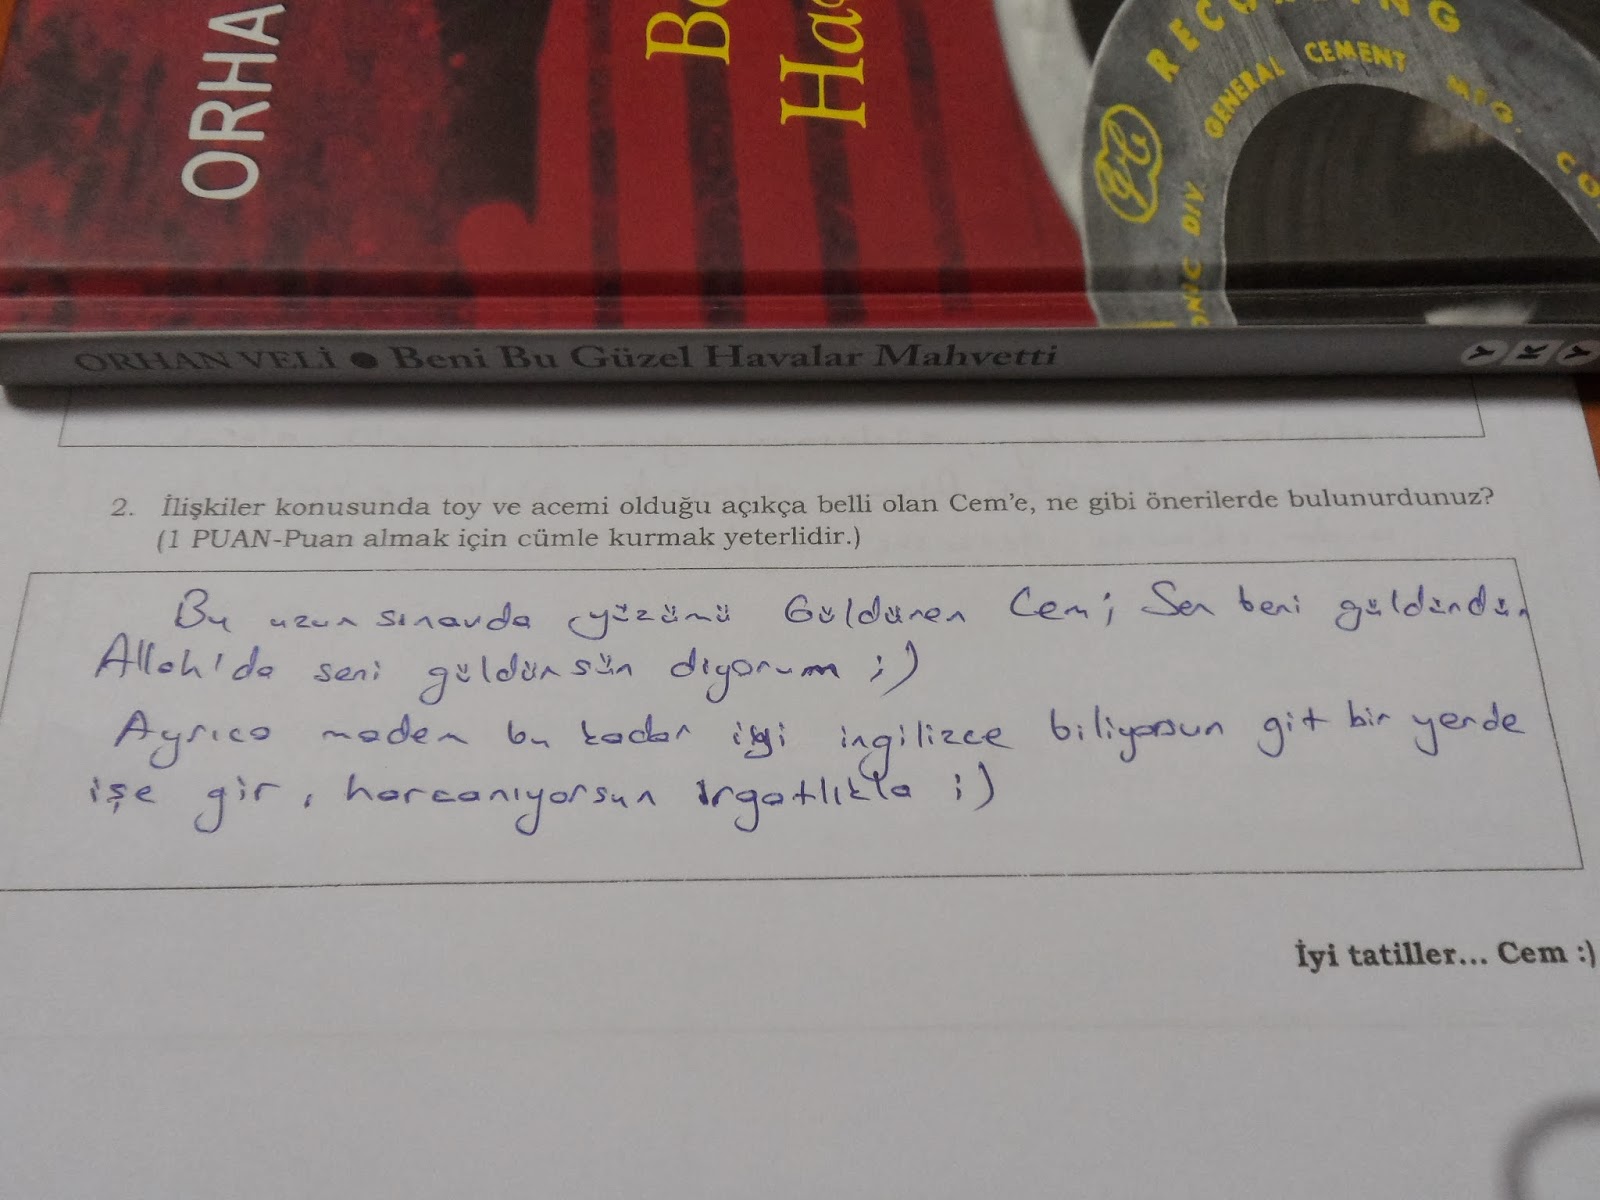 ORHA
Be
Ha
RECORDING
GENERAL CEMENT MFG. CO.
ONIC DIV
GC
ORHAN VELİ ● Beni Bu Güzel Havalar Mahvetti
YKY
2. İlişkiler konusunda toy ve acemi olduğu açıkça belli olan Cem'e, ne gibi önerilerde bulunurdunuz?
(1 PUAN-Puan almak için cümle kurmak yeterlidir.)
Bu uzun sınavda yüzümü Güldüren Cem; Sen beni güldürdün
Allah'da seni güldürsün diyorum ;)
Ayrıca madem bu kadar iyi ingilizce biliyorsun git bir yerde
işe gir, harcanıyorsun ırgatlıkla ;)
İyi tatiller... Cem :)